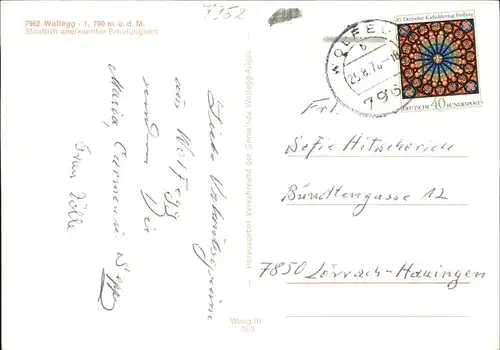 7962 Wolfegg - 1. 700 m ü. d. M.
Staatlich anerkannter Erholungsort
7952
Liebe Urlaubsgrüsse
aus Wolfegg
senden Dir
Maria, Carmen u. Sepp
Frau Zölle
Herausgeber: Verkehrsamt der Gemeinde Wolfegg-Allgäu
Wolfg 01
WOLFEGG
b
25.8.78-18
796
85. Deutscher Katholikentag Freiburg
DEUTSCHE BUNDESPOST
40
Frl.
Sofie Hitscherich
Bündtengasse 12
7850 Lörrach-Hauingen